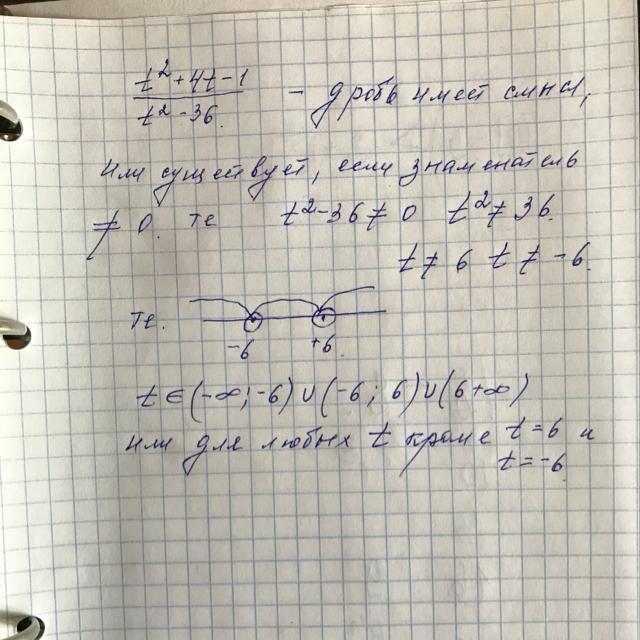 t²+4t-1
t²-36. - дробь имеет смысл,
или существует, если знаменатель
≠ 0. те t²-36≠0 t²≠36.
t≠6 t≠-6.
те.
-6 +6.
t∈(-∞;-6)∪(-6;6)∪(6+∞)
или для любых t кроме t=6 и
t=-6.